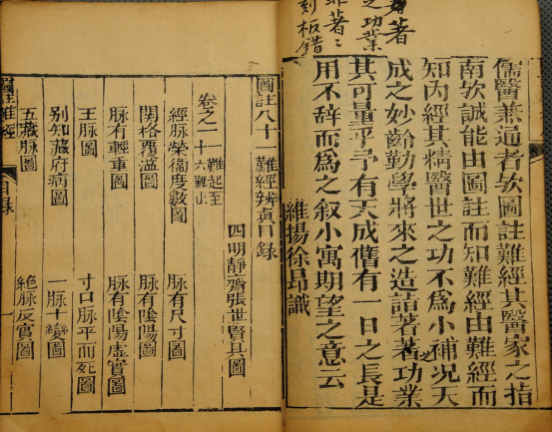 著
之功業
著〻
刻板錯
儒醫兼通者欤圖註難經其醫家之指
南欤誠能由圖註而知難經由難經而
知內經其精醫世之功不為小補況天
成之妙齡勤學將來之造詣著著之功業
其可量乎予有天成僭有一日之長是
用不辞而為之叙小寓期望之意云
維揚徐昂識
圖註八十一難經辨真目錄
四明靜齋張世賢具圖
卷之一 一難起至十六難止
經脈榮衛度數圖 脈有尺寸圖
關格覆溢圖 脈有陰陽圖
脈有輕重圖 脈有陰陽虛實圖
王脈圖 寸口脈平而死圖
別知藏府病圖 一脈十變圖
五藏脈圖 絕脈反實圖
圖註難經 目錄